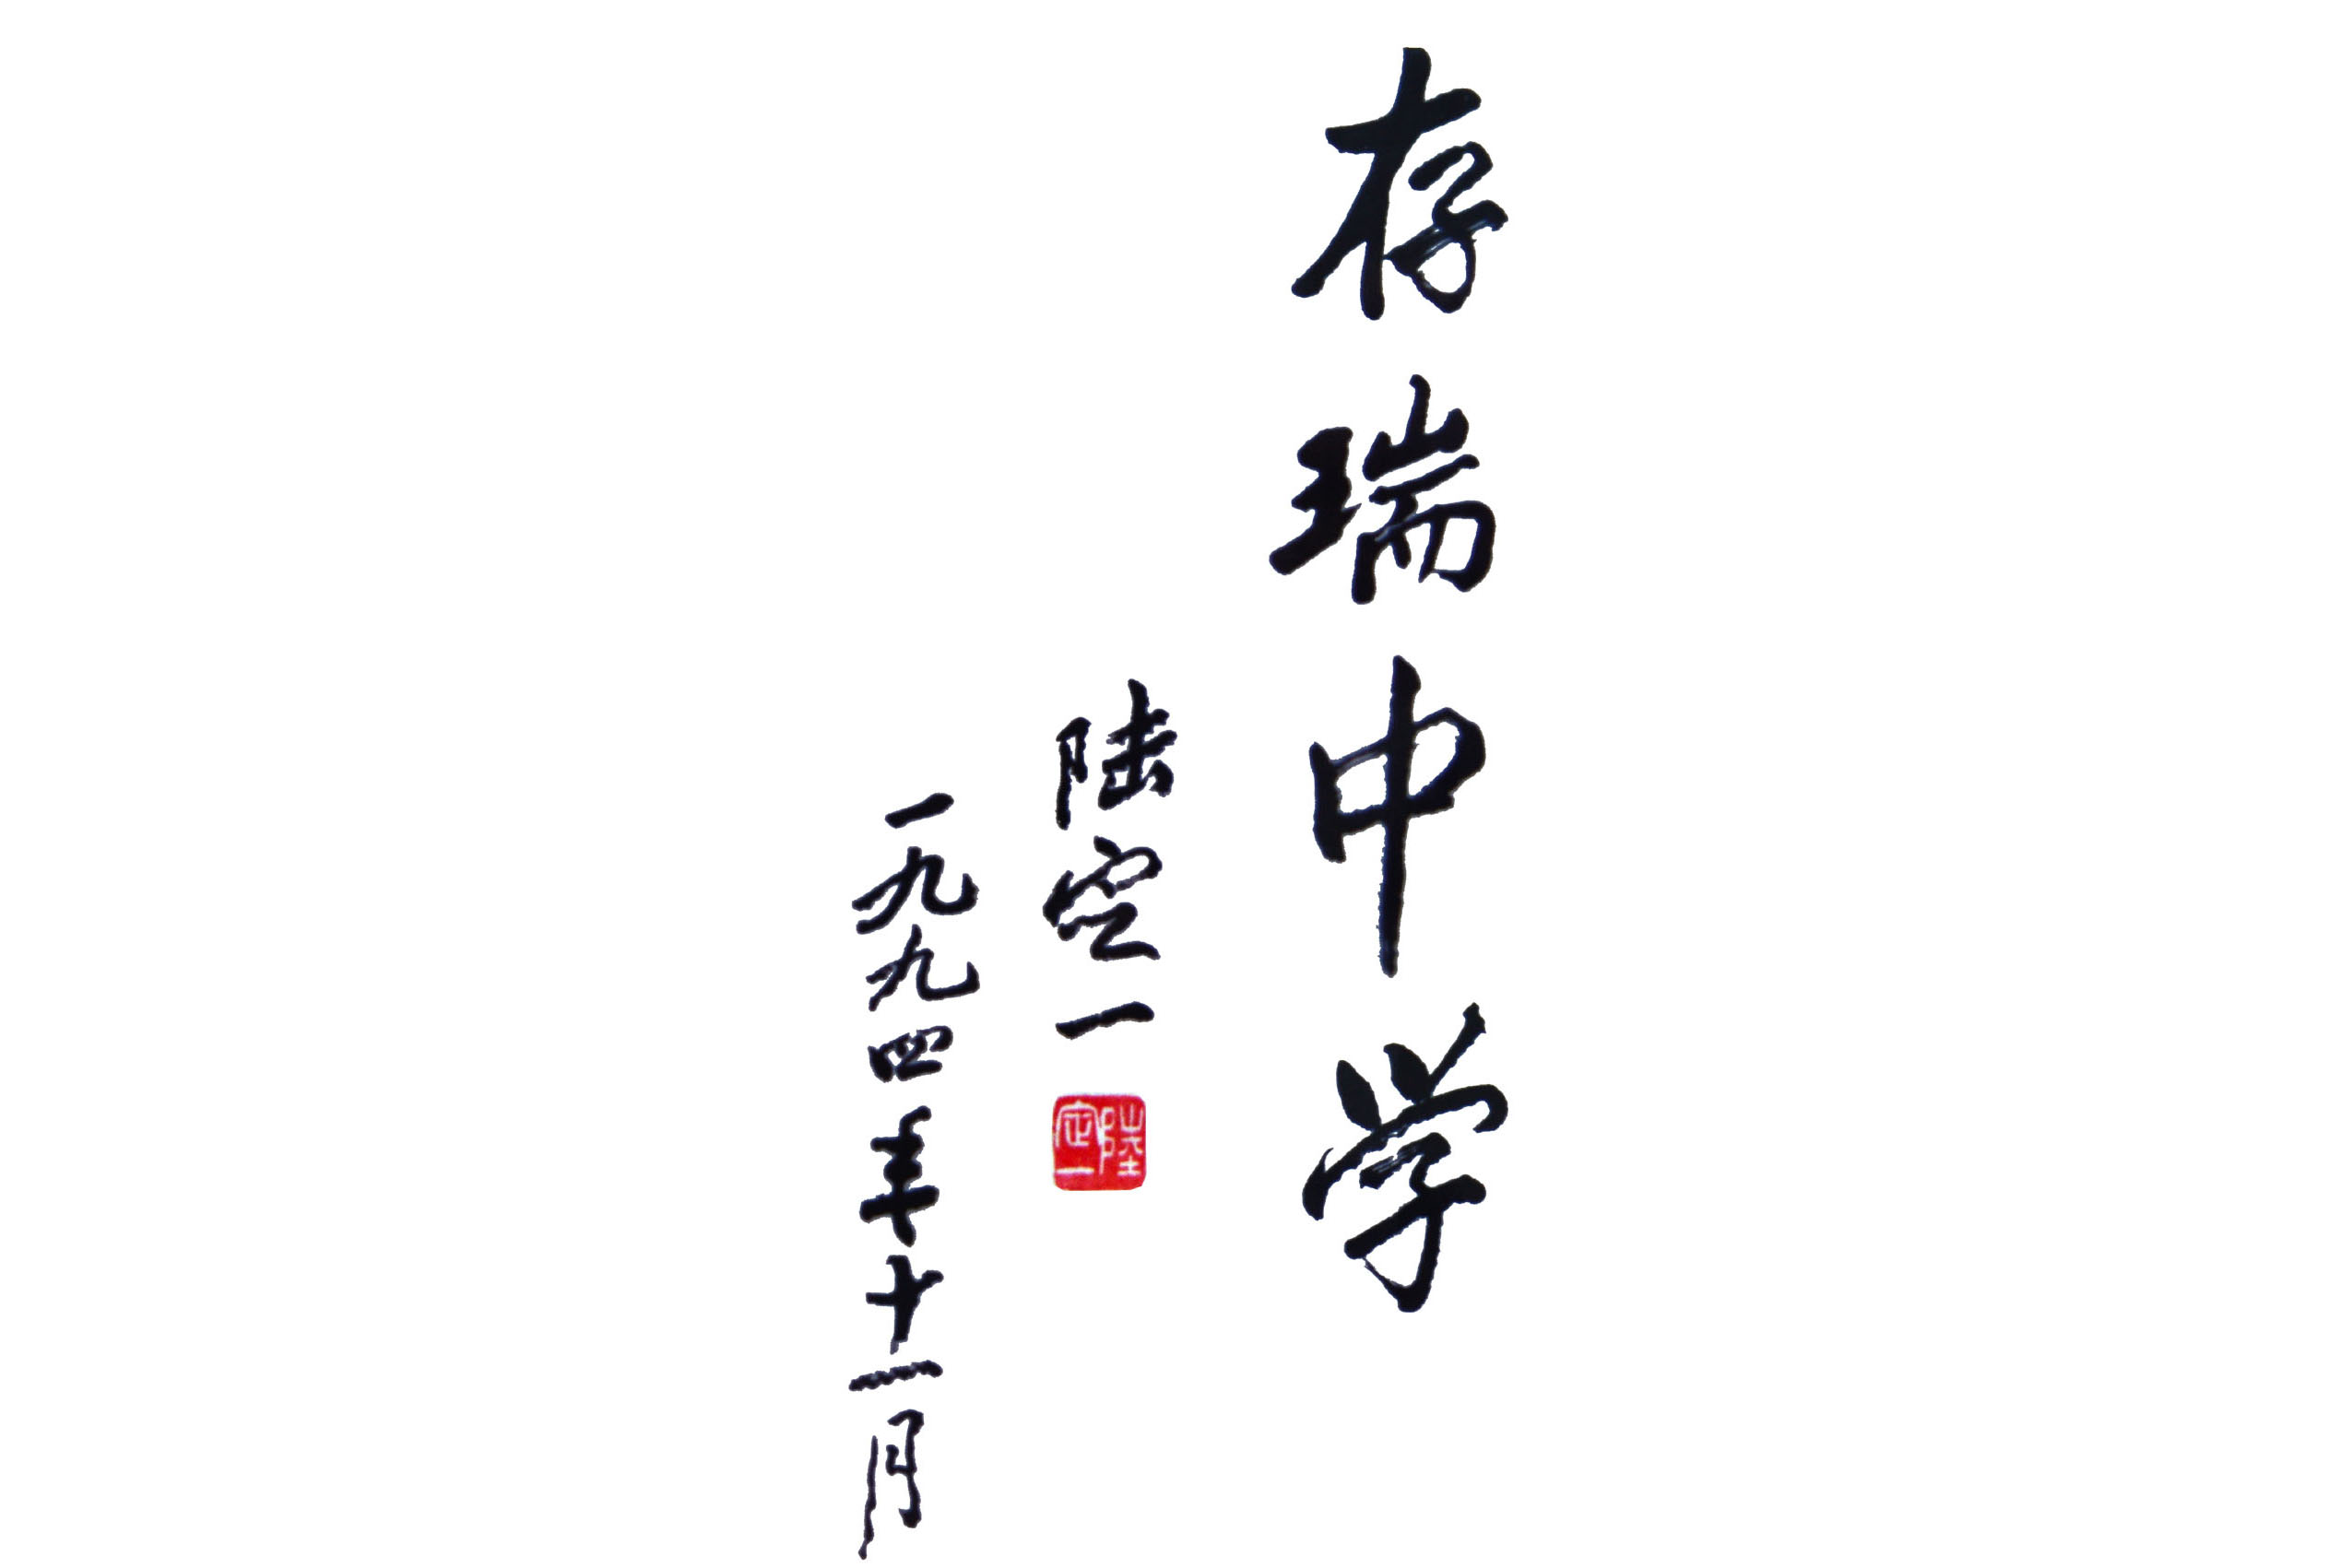 存瑞中学
陆定一
陸定一
一九九四年十一月